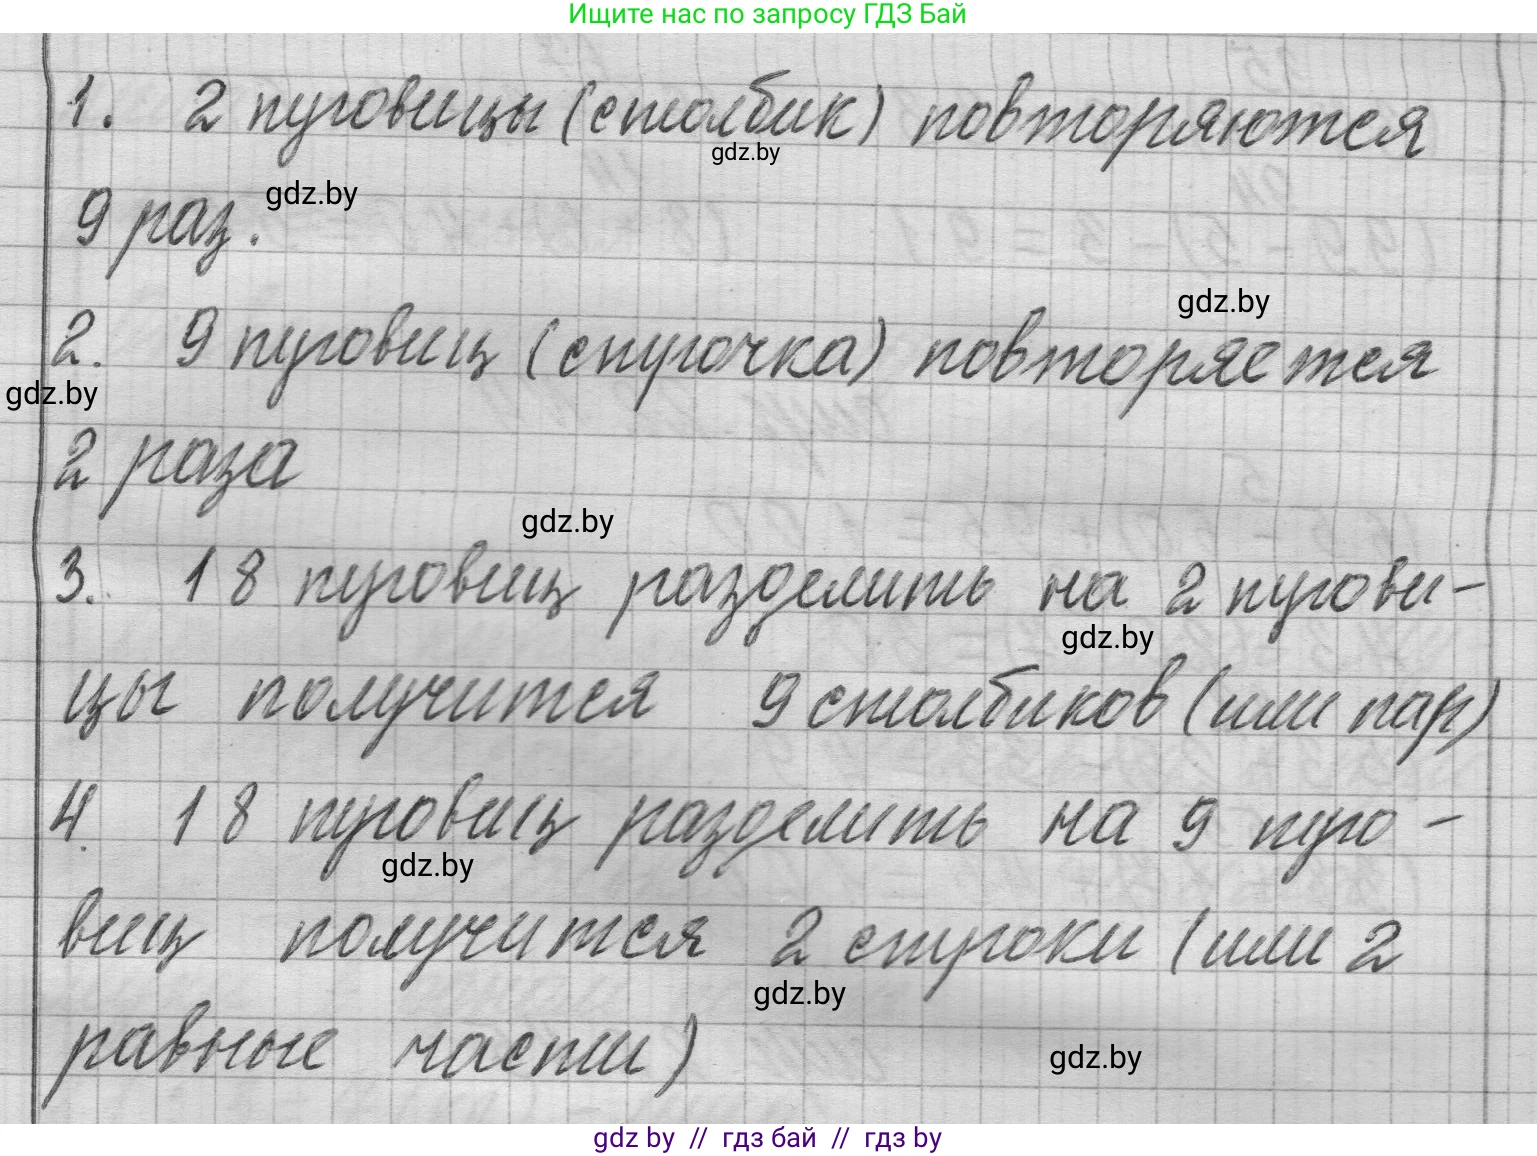 Ищите нас по запросу ГДЗ Бай
1. 2 пуговицы (столбик) повторяются
gdz.by
9 раз.
gdz.by
gdz.by
2. 9 пуговиц (строчка) повторяется
gdz.by
2 раза
gdz.by
3. 18 пуговиц разделить на 2 пугови-
gdz.by
цы получится 9 столбиков (или пар)
4. 18 пуговиц разделить на 9 пуго-
gdz.by
виц получится 2 строки (или 2
gdz.by
равные части)
gdz.by
gdz by // гдз бай // гдз by